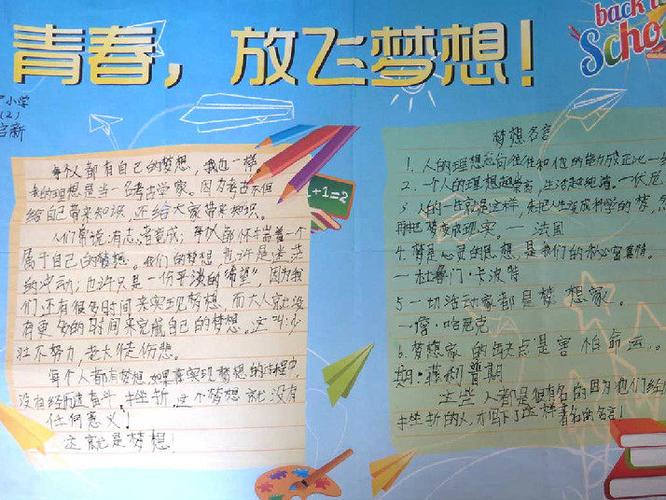 青春，放飞梦想！
back
Scho
小学
(2)
新
每个人都有自己的梦想，我也一样
我的理想是当一名考古学家。因为考古不但
给自己带来知识，还给大家带来知识。
人们常说：有志者竟成，每个人都怀揣着一个
属于自己的梦想。我们的梦想也许是迷茫
的冲动；也许只是一份平淡的"希望"，因为我
们还有很多时间来实现梦想，而大人就没
有更多的时间来完成自己的梦想。这叫少
壮不努力，老大徒伤悲。
每个人都有梦想，如果在实现梦想的过程中
没有经历过奋斗，挫折，这个梦想就没有
任何意义！
这就是梦想！
1+1=2
梦想名言
1. 人的理想志向往往和他的能力成正比
2. 一个人的理想越崇高，生活越纯洁。一伏尼
3. 人的一生就是这样，先把人生变成科学的梦，
再把梦变成现实。一 法国
4. 梦是心灵的思想，是我们的秘密真情。
一杜鲁门·卡波特
5 一切活动家都是梦想家。
一詹·哈尼克
6. 梦想家的缺点是害怕命运。
期·菲利普期
这些人都是很有名的因为他们经
挫折的人，才留下了这样著名的名言！